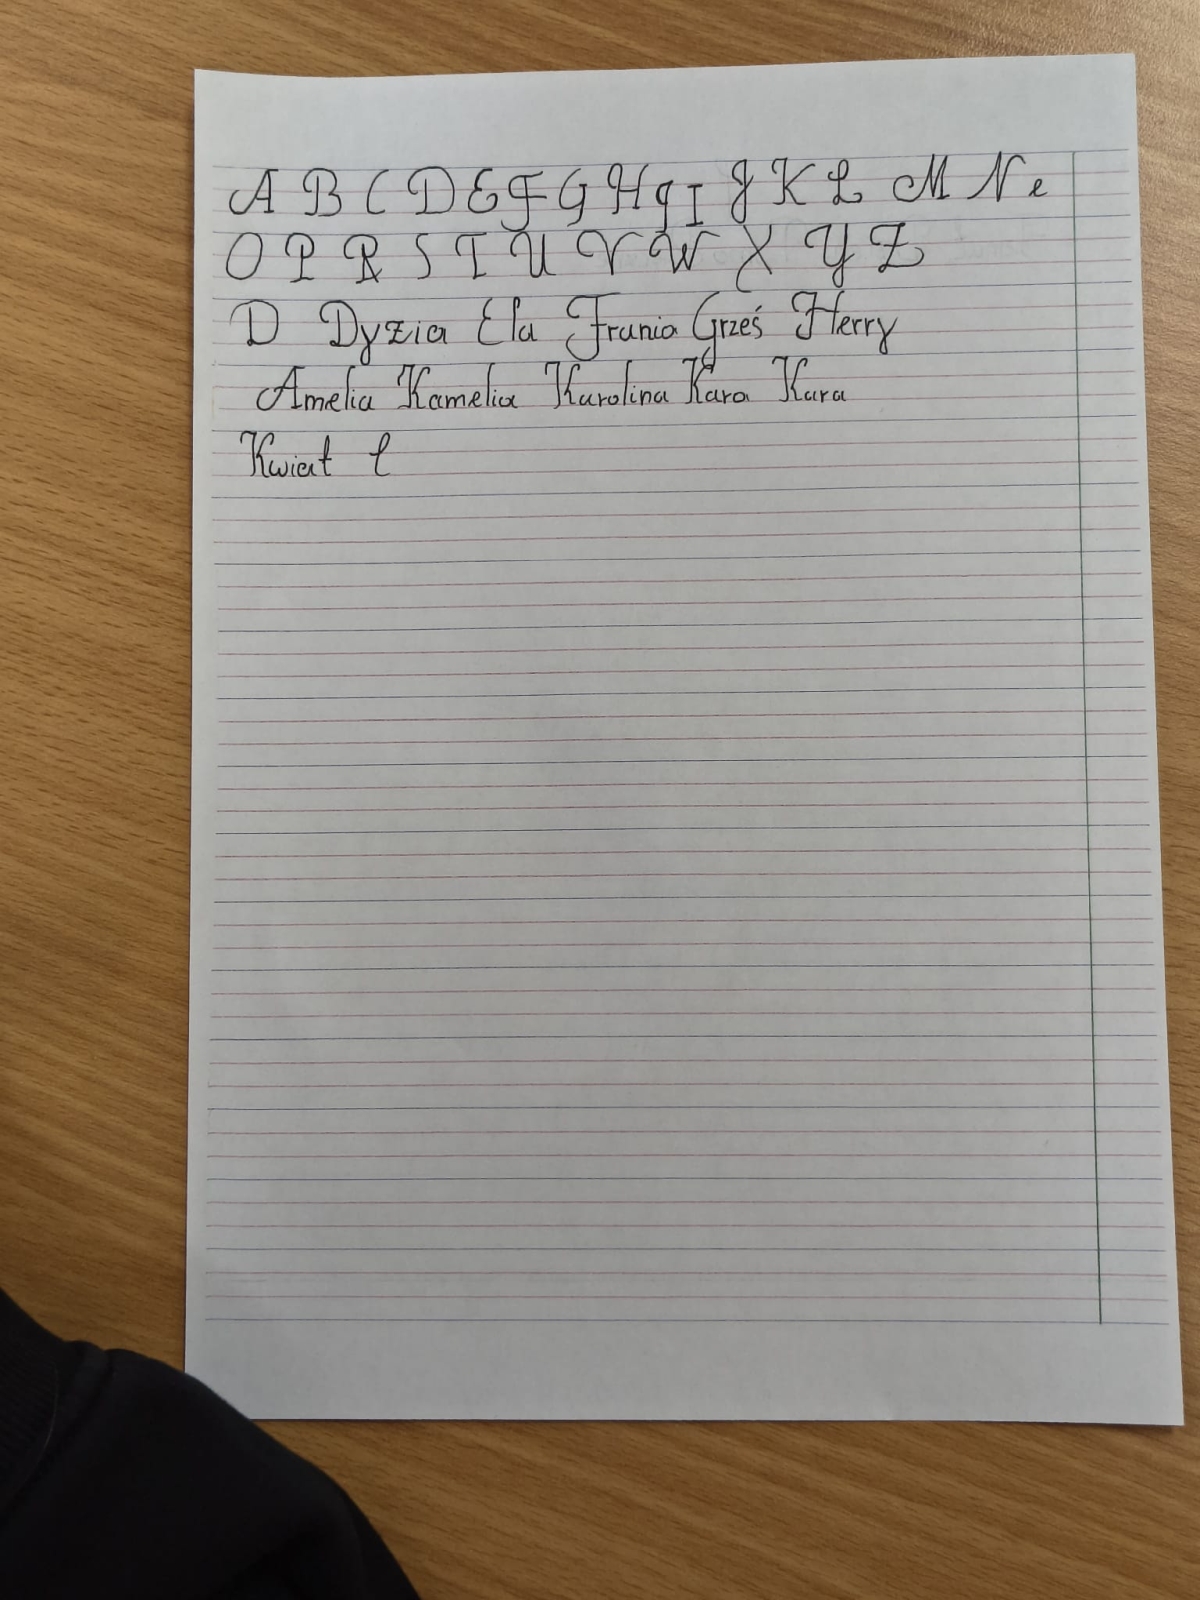 A B C D E F G H q I J K L M N e
O P R S T U V W X Y Z
D Dyzia Ela Frania Grześ Herry
Amelia Kamelia Karolina Kara Kara
Kwiat l